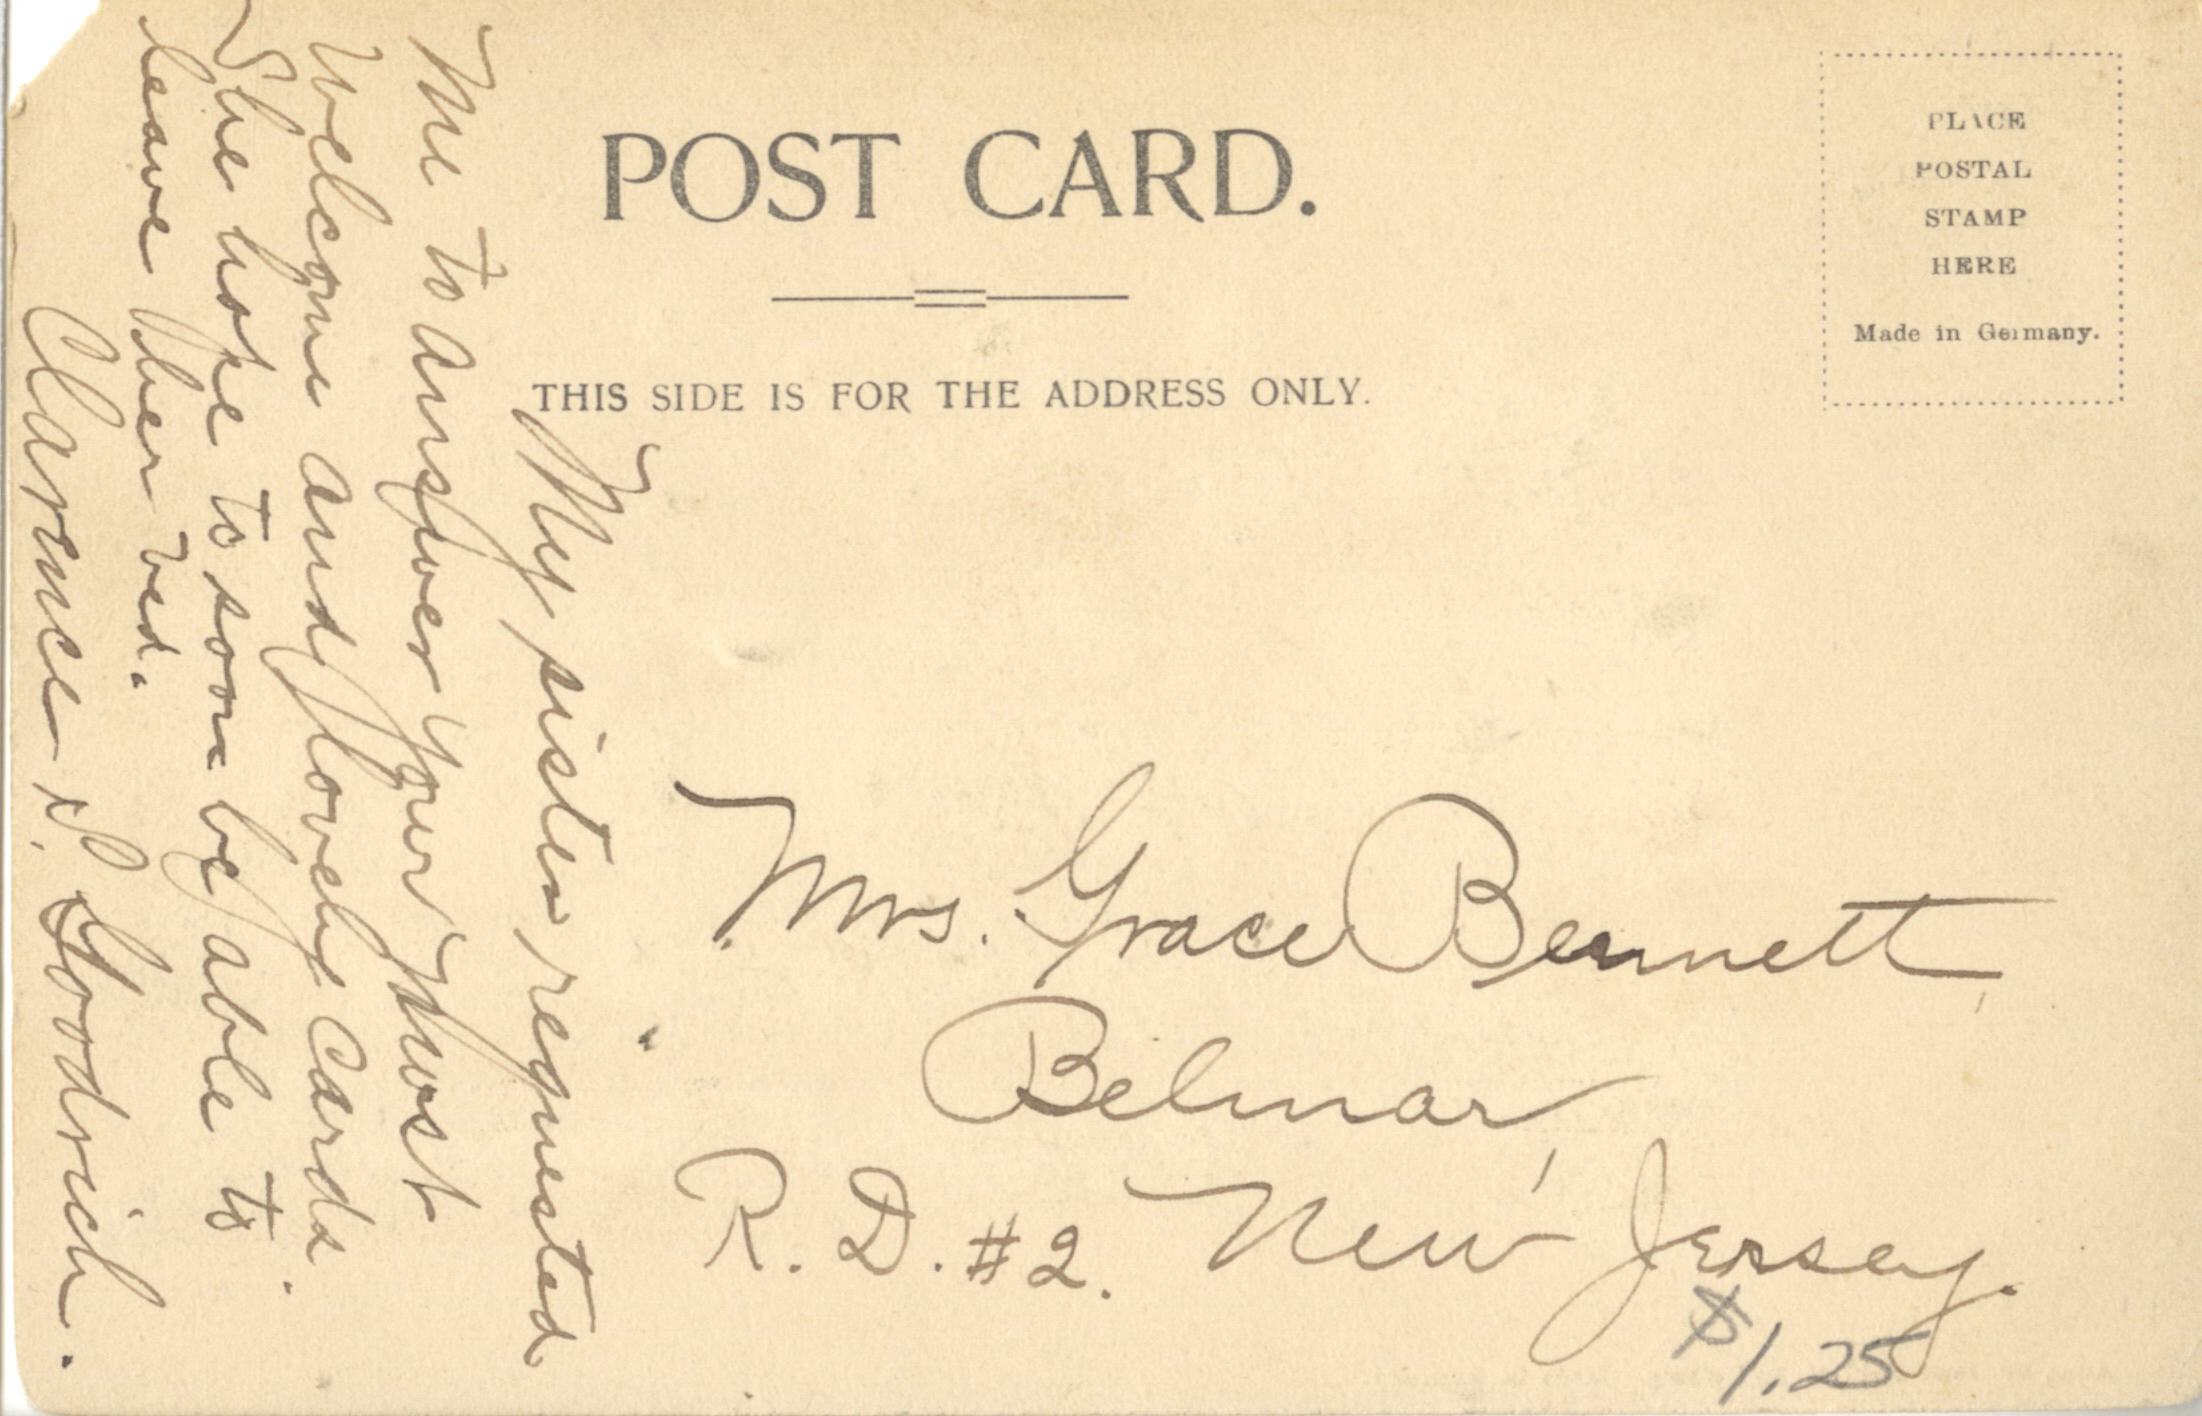 POST CARD.
THIS SIDE IS FOR THE ADDRESS ONLY.
PLACE
POSTAL
STAMP
HERE
Made in Germany.
My sister requested
me to answer your most
welcome and lovely cards.
She hope to soon be able to
leave her bed.
Clarence S. Goodrich.
Mrs. Grace Bennett
Belmar,
R. D. #2. New Jersey.
$1.25